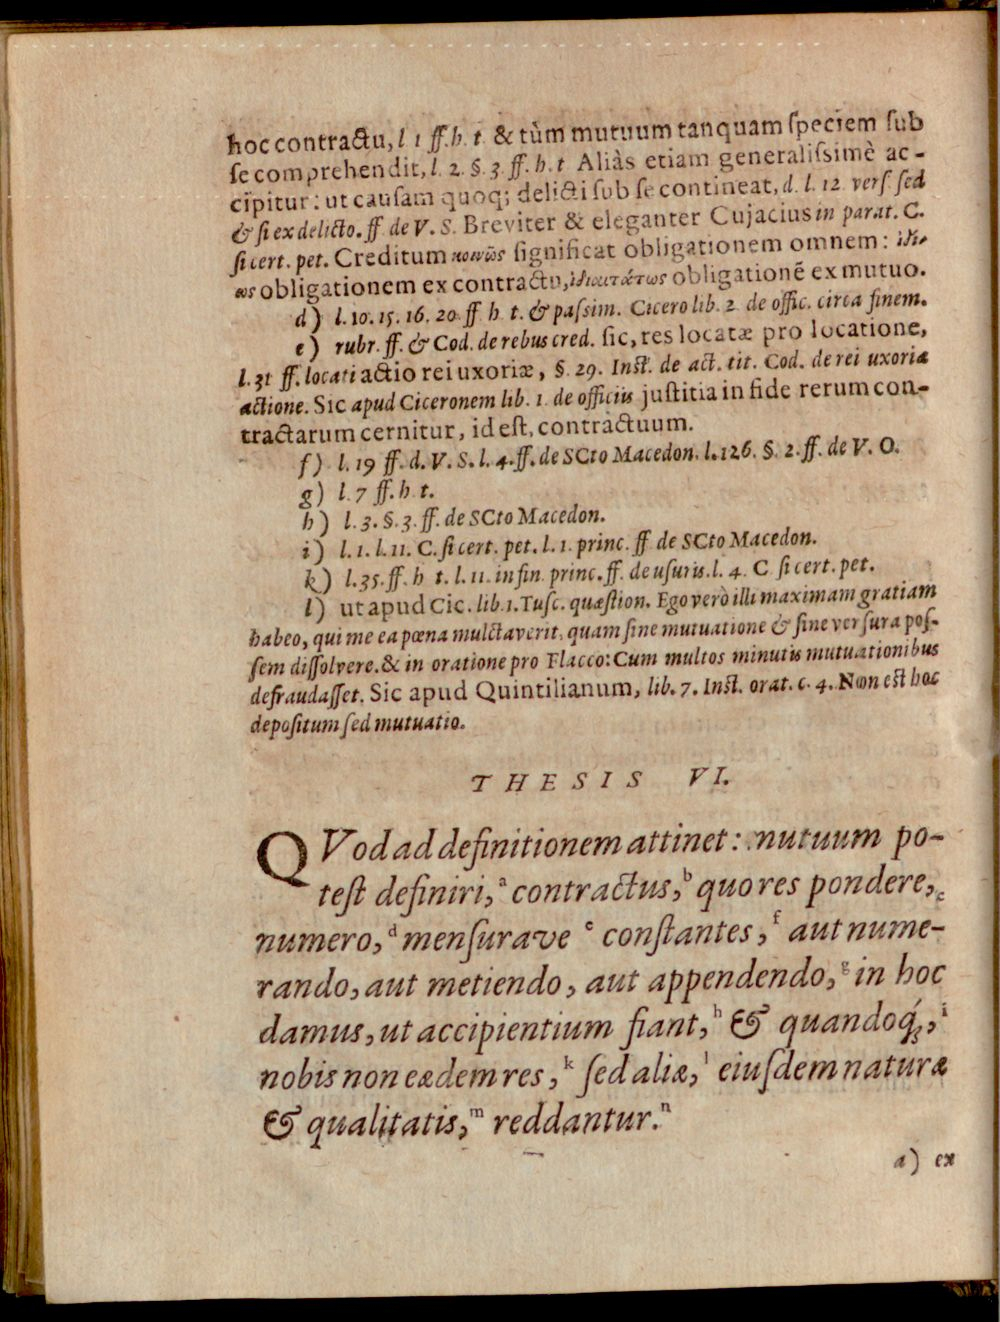 hoc contractu, l 1 ff. h. t. & tùm mutuum tanquam ſpeciem ſub
ſe comprehendit, l. 2. §. 3. ff. h. t Aliàs etiam generaliſsimè ac-
cipitur: ut cauſam quoq; delicti ſub ſe contineat, d. l. 12. verſ. ſed
& ſi ex delicto. ff. de V. S. Breviter & eleganter Cujacius in parat. C.
ſi cert. pet. Creditum κοινῶς ſignificat obligationem omnem: ἰδί-
ως obligationem ex contractu, ἰδιαιτάτως obligationẽ ex mutuo.
d) l. 10. 15. 16. 20. ff. h. t. & paſsim. Cicero lib. 2. de offic. circa finem.
e) rubr. ff. & Cod. de rebus cred. ſic, res locatæ pro locatione,
l. 31 ff. locati actio rei uxoriæ, §. 29. Inſt. de act. tit. Cod. de rei uxoriæ
actione. Sic apud Ciceronem lib. 1. de officiis juſtitia in fide rerum con-
tractarum cernitur, id eſt, contractuum.
f) l. 19 ff. d. V. S. l. 4. ff. de SCto Macedon. l. 126. §. 2. ff. de V. O.
g) l. 7 ff. h. t.
h) l. 3. §. 3. ff. de SCto Macedon.
i) l. 1. l. 11. C. ſi cert. pet. l. 1. princ. ff de SCto Macedon.
k) l. 35. ff. h t. l. 11. in fin. princ. ff. de uſuris. l. 4. C ſi cert. pet.
l) ut apud Cic. lib. 1. Tuſc. quæſtion. Ego verò illi maximam gratiam
habeo, qui me ea pœna mulctaverit, quam ſine mutuatione & ſine verſura poſ-
ſem diſſolvere. & in oratione pro Flacco: Cum multos minutis mutuationibus
defraudaſſet. Sic apud Quintilianum, lib. 7. Inſt. orat. c. 4. Non eſt hoc
depoſitum ſed mutuatio.
THESIS VI.
QVod ad definitionem attinet: mutuum po-
teſt definiri,ᵃ contractus,ᵇ quo res pondere,ᶜ
numero,ᵈ menſurave ᵉ conſtantes,ᶠ aut nume-
rando, aut metiendo, aut appendendo,ᵍ in hoc
damus, ut accipientium fiant,ʰ & quandoq́;,ⁱ
nobis non eædem res,ᵏ ſed aliæ,ˡ eiuſdem naturæ
& qualitatis,ᵐ reddantur.ⁿ
a) ex